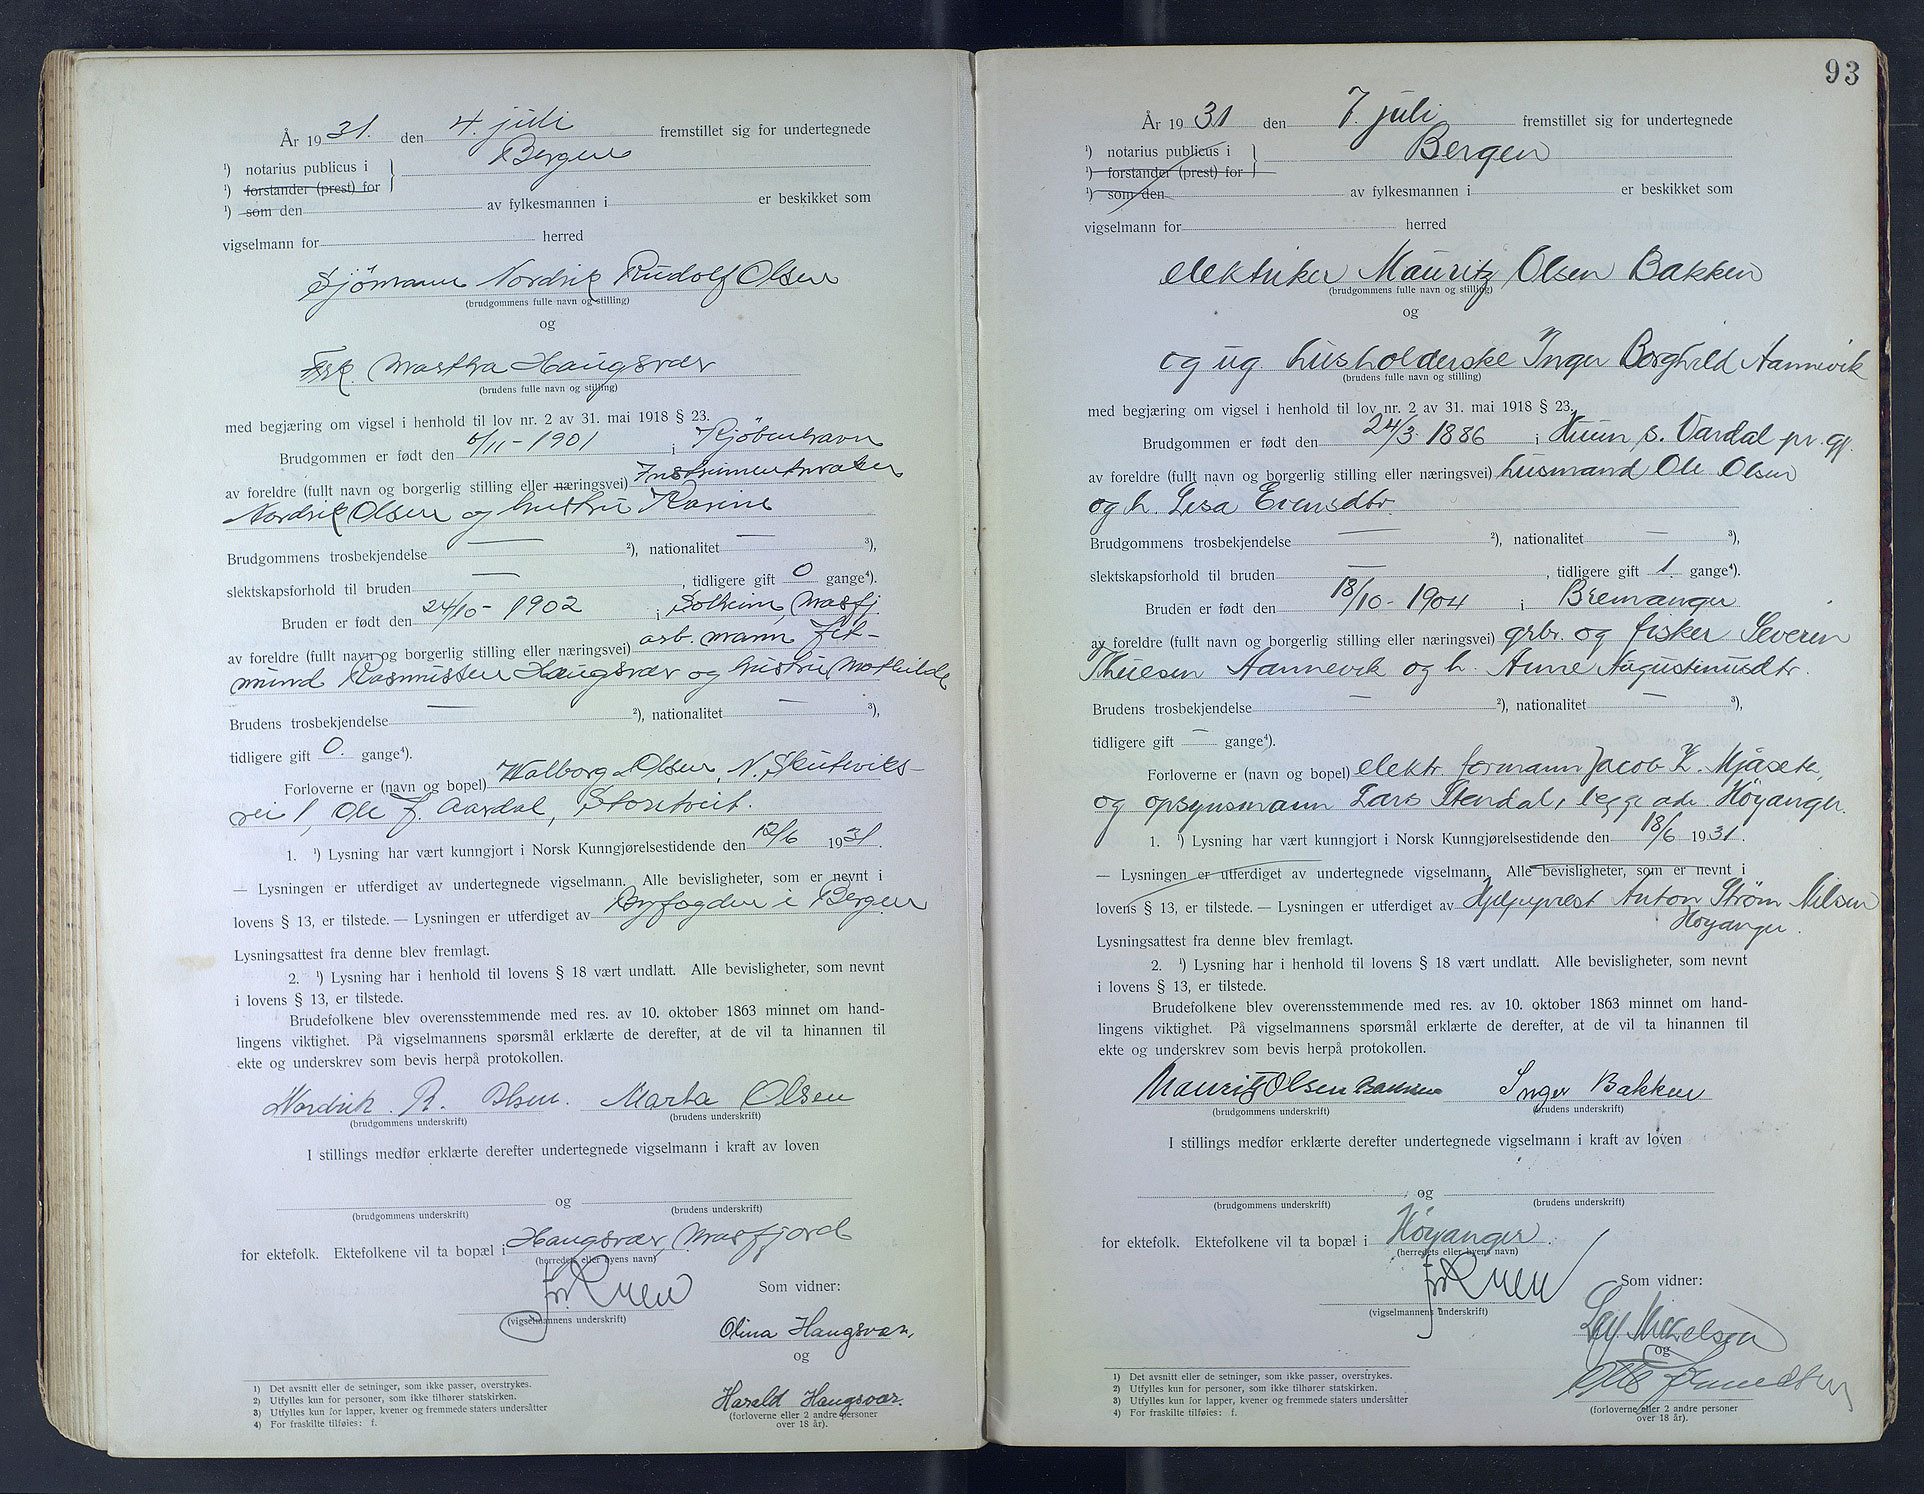 År 1931. den 4. juli fremstillet sig for undertegnede
¹) notarius publicus i } Bergen
¹) forstander (prest) for
¹) som den av fylkesmannen i er beskikket som
vigselmann for herred
Sjömann Nordrik Rudolf Olsen
(brudgommens fulle navn og stilling)
og
Frk. Martha Haugsvær
(brudens fulle navn og stilling)
med begjæring om vigsel i henhold til lov nr. 2 av 31. mai 1918 § 23.
Brudgommen er født den 6/11 - 1901 i Kjöbenhavn
av foreldre (fullt navn og borgerlig stilling eller næringsvei) Instrumentmaker
Nordrik Olsen og hustru Karine
Brudgommens trosbekjendelse — ²), nationalitet — ³),
slektskapsforhold til bruden — , tidligere gift 0 gange⁴).
Bruden er født den 24/10 - 1902 i Solheim, Masfj.
av foreldre (fullt navn og borgerlig stilling eller næringsvei) arb. mann
mund Rasmussen Haugsvær og hustru Mathilde
Brudens trosbekjendelse — ²), nationalitet — ³),
tidligere gift 0. gange⁴).
Forloverne er (navn og bopel) Walborg Olsen, N. Skuteviks-
vei 1, Ole J. Aardal, Storetveit.
1. ¹) Lysning har vært kunngjort i Norsk Kunngjørelsestidende den 12/6 1931.
— Lysningen er utferdiget av undertegnede vigselmann. Alle bevisligheter, som er nevnt i
lovens § 13, er tilstede. — Lysningen er utferdiget av Byfogden i Bergen
Lysningsattest fra denne blev fremlagt.
2. ¹) Lysning har i henhold til lovens § 18 vært undlatt. Alle bevisligheter, som nevnt
i lovens § 13, er tilstede.
Brudefolkene blev overensstemmende med res. av 10. oktober 1863 minnet om hand-
lingens viktighet. På vigselmannens spørsmål erklærte de derefter, at de vil ta hinannen til
ekte og underskrev som bevis herpå protokollen.
Nordrik. R. Olsen. Marta Olsen
(brudgommens underskrift) (brudens underskrift)
I stillings medfør erklærte derefter undertegnede vigselmann i kraft av loven
og
(brudgommens underskrift) (brudens underskrift)
for ektefolk. Ektefolkene vil ta bopæl i Haugsvær, Masfjord
(herredets eller byens navn)
Som vidner:
(vigselmannens underskrift)
Olina Haugsvær,
og
Harald Haugsvær.
(forloverne eller 2 andre personer
over 18 år).
1) Det avsnitt eller de setninger, som ikke passer, overstrykes.
2) Utfylles kun for personer, som ikke tilhører statskirken.
3) Utfylles kun for lapper, kvener og fremmede staters undersåtter
4) For fraskilte tilføies: f.
93
År 1931 den 7. juli fremstillet sig for undertegnede
¹) notarius publicus i } Bergen
¹) forstander (prest) for
¹) som den av fylkesmannen i er beskikket som
vigselmann for herred
elektriker Mauritz Olsen Bakken
(brudgommens fulle navn og stilling)
og
og ug. husholderske Inger Borghild Aannevik
(brudens fulle navn og stilling)
med begjæring om vigsel i henhold til lov nr. 2 av 31. mai 1918 § 23.
Brudgommen er født den 24/3 1886 i s. Vardal pr. gj.
av foreldre (fullt navn og borgerlig stilling eller næringsvei) husmand Ole Olsen
og h. Lisa Evensdtr.
Brudgommens trosbekjendelse — ²), nationalitet — ³),
slektskapsforhold til bruden — , tidligere gift 1. gange⁴).
Bruden er født den 18/10 - 1904 i Bremanger
av foreldre (fullt navn og borgerlig stilling eller næringsvei) grbr. og fisker Severin
Thuesen Aannevik og h. Anne Augustinusdtr.
Brudens trosbekjendelse — ²), nationalitet — ³),
tidligere gift — gange⁴).
Forloverne er (navn og bopel) elektr. formann Jacob L. Mjåsete,
og opsynsmann Lars Stendal, begge adr. Höyanger.
1. ¹) Lysning har vært kunngjort i Norsk Kunngjørelsestidende den 18/6 1931.
— Lysningen er utferdiget av undertegnede vigselmann. Alle bevisligheter, som er nevnt i
lovens § 13, er tilstede. — Lysningen er utferdiget av Hjelpeprest Anton Strøm Nilsen
Höyanger.
Lysningsattest fra denne blev fremlagt.
2. ¹) Lysning har i henhold til lovens § 18 vært undlatt. Alle bevisligheter, som nevnt
i lovens § 13, er tilstede.
Brudefolkene blev overensstemmende med res. av 10. oktober 1863 minnet om hand-
lingens viktighet. På vigselmannens spørsmål erklærte de derefter, at de vil ta hinannen til
ekte og underskrev som bevis herpå protokollen.
Mauritz Olsen Bakken Inger Bakken
(brudgommens underskrift) (brudens underskrift)
I stillings medfør erklærte derefter undertegnede vigselmann i kraft av loven
og
(brudgommens underskrift) (brudens underskrift)
for ektefolk. Ektefolkene vil ta bopæl i Höyanger.
(herredets eller byens navn)
Som vidner:
(vigselmannens underskrift)
og
(forloverne eller 2 andre personer
over 18 år).
1) Det avsnitt eller de setninger, som ikke passer, overstrykes.
2) Utfylles kun for personer, som ikke tilhører statskirken.
3) Utfylles kun for lapper, kvener og fremmede staters undersåtter
4) For fraskilte tilføies: f.